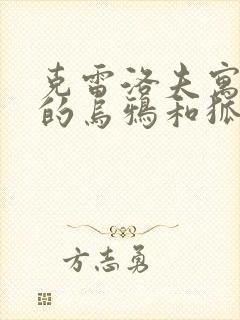 克雷洛夫寓
的乌鸦和狐
方志勇